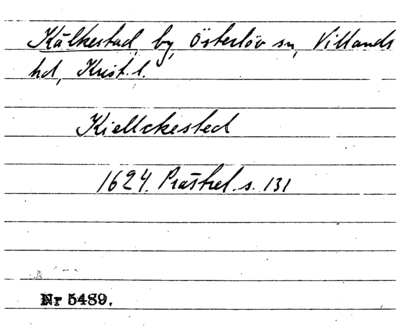 Kälkestad, by, Österlöv sn, Villands
hd, Krist. l.
Kiellckested
1624. Prästrel. s. 131
Nr 5489.